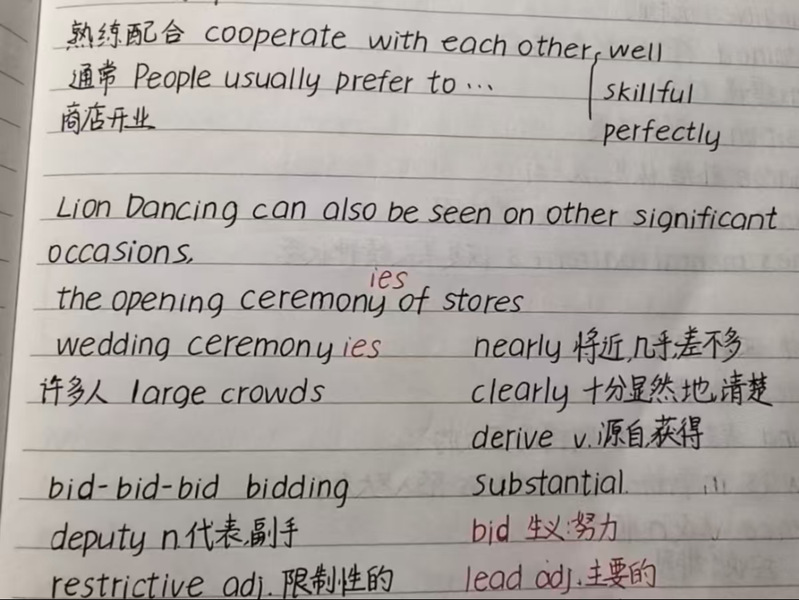 熟练配合 cooperate with each other, well
通常 People usually prefer to ...
skillful
商店开业
perfectly
Lion Dancing can also be seen on other significant
occasions.
ies
the opening ceremony of stores
wedding ceremony ies
nearly 将近,几乎,差不多
许多人 large crowds
clearly 十分显然地,清楚
derive v. 源自,获得
bid-bid-bid bidding
substantial.
deputy n.代表,副手
bid 生义:努力
restrictive adj. 限制性的
lead adj.主要的